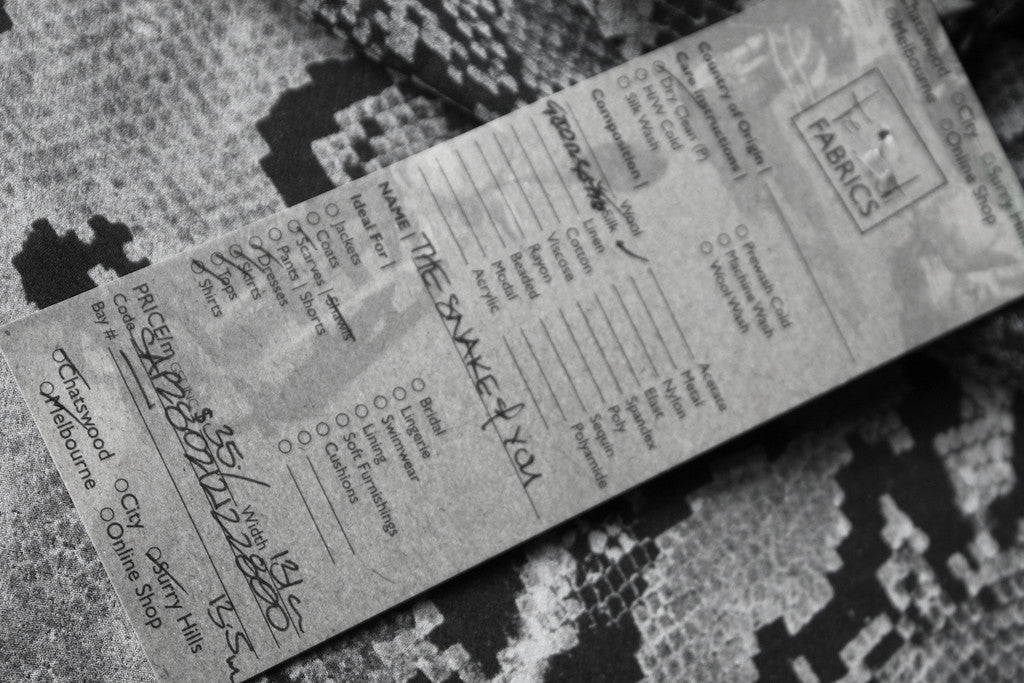 Chatswood City Surry Hills
Melbourne Online Shop
The
FABRICS
Country of Origin |
Care Instructions |
Dry Clean (P) Prewash Cold
H/W Cold Machine Wash
Silk Wash Wool Wash
Composition |
Wool Acetate
Silk ✓ Metal
Linen Nylon
Cotton Elast
Viscose Spandex
Rayon Poly
Beaded Sequin
Modal Polyamide
Acrylic
NAME | THE SNAKE & YOU
Ideal For |
Jackets Bridal
Coats Lingerie
Scarves | Shawls Swimwear
Pants | Shorts Lining
Dresses Soft Furnishings
Skirts Cushions
Tops
Shirts
PRICE/m $35/ Width
Code
Bay #
Chatswood City Surry Hills
Melbourne Online Shop